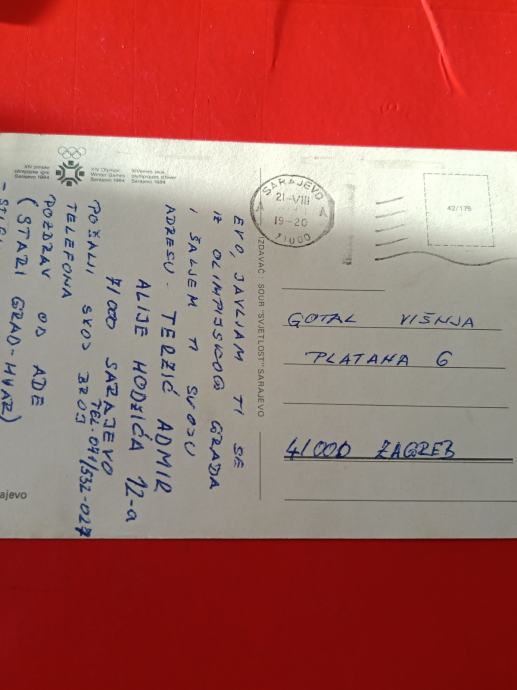 XIV zimske
olimpijske igre
Sarajevo 1984
XIV Olympic
Winter Games
Sarajevo 1984
XIVèmes jeux
olympiques d'hiver
Sarajevo 1984
EVO, JAVLJAM TI SE
IZ OLIMPIJSKOG GRADA
I ŠALJEM TI SVOJU
ADRESU. TERZIĆ ADMIR
ALIJE HODŽIĆA 12-a
71000 SARAJEVO
TEL. 071/532-027
POŠALJI SVOJ BROJ
TELEFONA
POZDRAV OD ADE
(STARI GRAD-HVAR)
ajevo
IZDAVAČ: SOUR "SVJETLOST" SARAJEVO
SARAJEVO
21-VIII
19-20
71000
42/175
GOTAL VIŠNJA
PLATANA 6
41000 ZAGREB